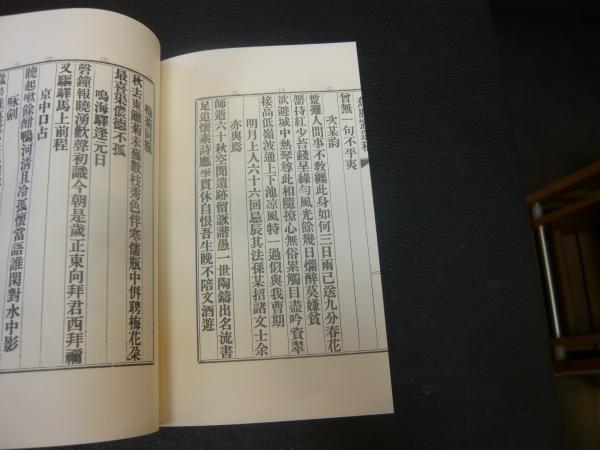 曾無一句不平夷
次某韵
蹔難人間事不教纏此身如何三日雨己送九分春花
慳持紅少苔錢呈綠勻風光餘幾日爛醉莫嫌貧
欲遊城中熱琴尊此相隨撩心無俗累觸目盡吟資翠
接高低嶺波通上下池涼風特一過似與我曹期
明月上人六十六回忌辰其法孫某招諸文士余
亦與焉
師逝六十秋空聞遺跡留詼諧愚一世陶鑄出名流書
足追懷素詩應學貫休自恨吾生晚不陪文酒遊
秋去東籬菊未蕪數枝秀色伴寒儒瓶中併聘梅花朶
最喜果儂德不孤
鳴海驛逢元日
磬鐘報曉湧歡聲初識今朝是歲正東向拜君西拜禰
又驅驛馬上前程
京中口占
曉起嗽餘酣鴨河清且冷孤懷當語誰閑對水中影
咏劍